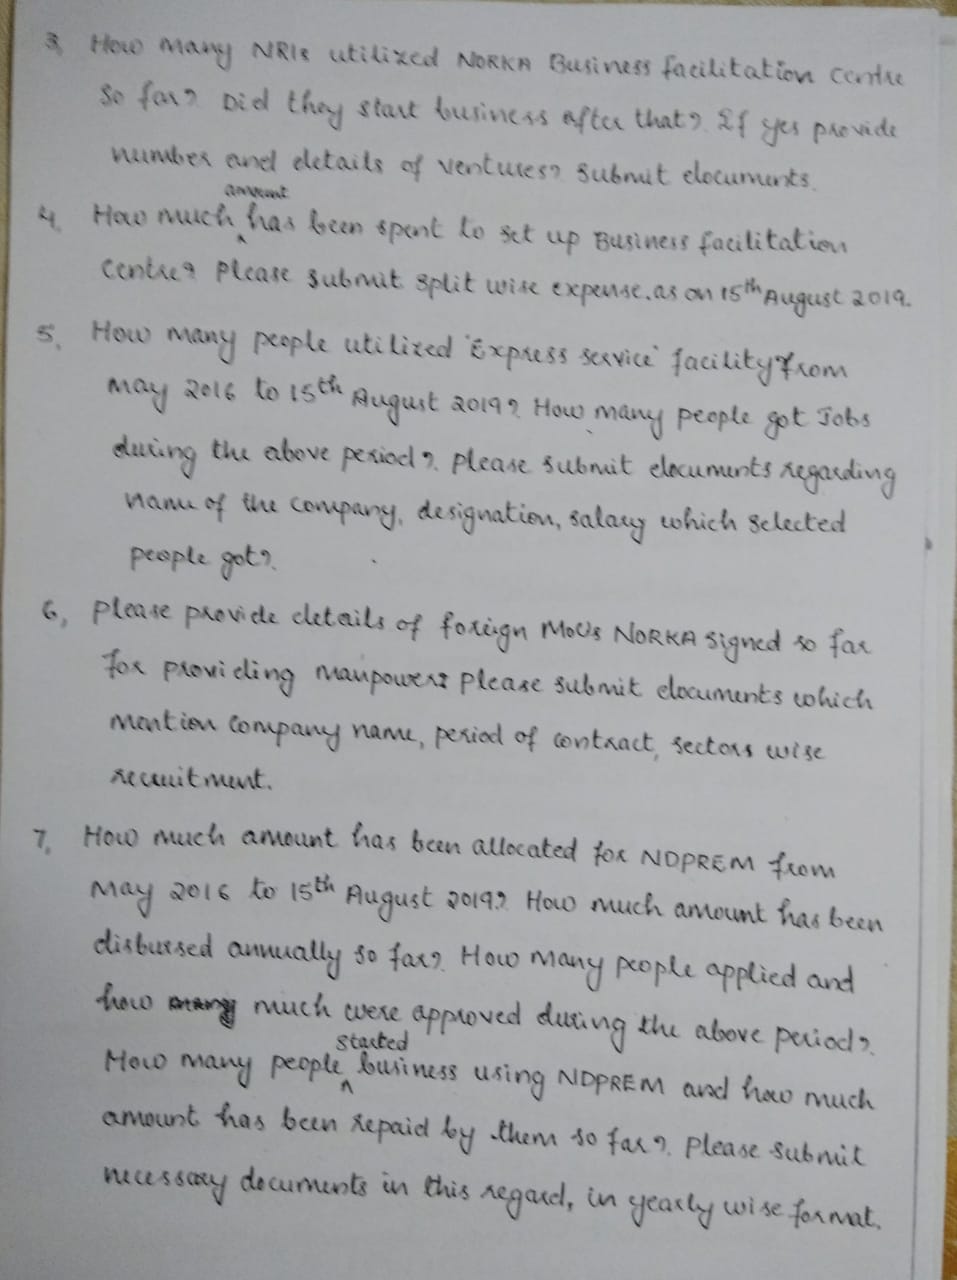 3, How many NRIs utilized NORKA Business facilitation centre
so far? Did they start business after that? If yes provide
number and details of ventures? Submit documents.
amount
4, How much ^ has been spent to set up Business facilitation
Centre? Please submit split wise expense. as on 15th August 2019.
5, How many people utilized 'Express service' facility from
May 2016 to 15th August 2019? How many people got Jobs
during the above period? Please submit documents regarding
name of the company, designation, salary which selected
people got?
6, Please provide details of foreign MoUs NORKA signed so far
for providing manpower? Please submit documents which
mention company name, period of contract, sectors wise
recruitment.
7, How much amount has been allocated for NDPREM from
May 2016 to 15th August 2019? How much amount has been
disbursed annually so far? How many people applied and
how many much were approved during the above period?
started
How many people ^ business using NDPREM and how much
amount has been repaid by them so far? Please submit
necessary documents in this regard, in yearly wise format.